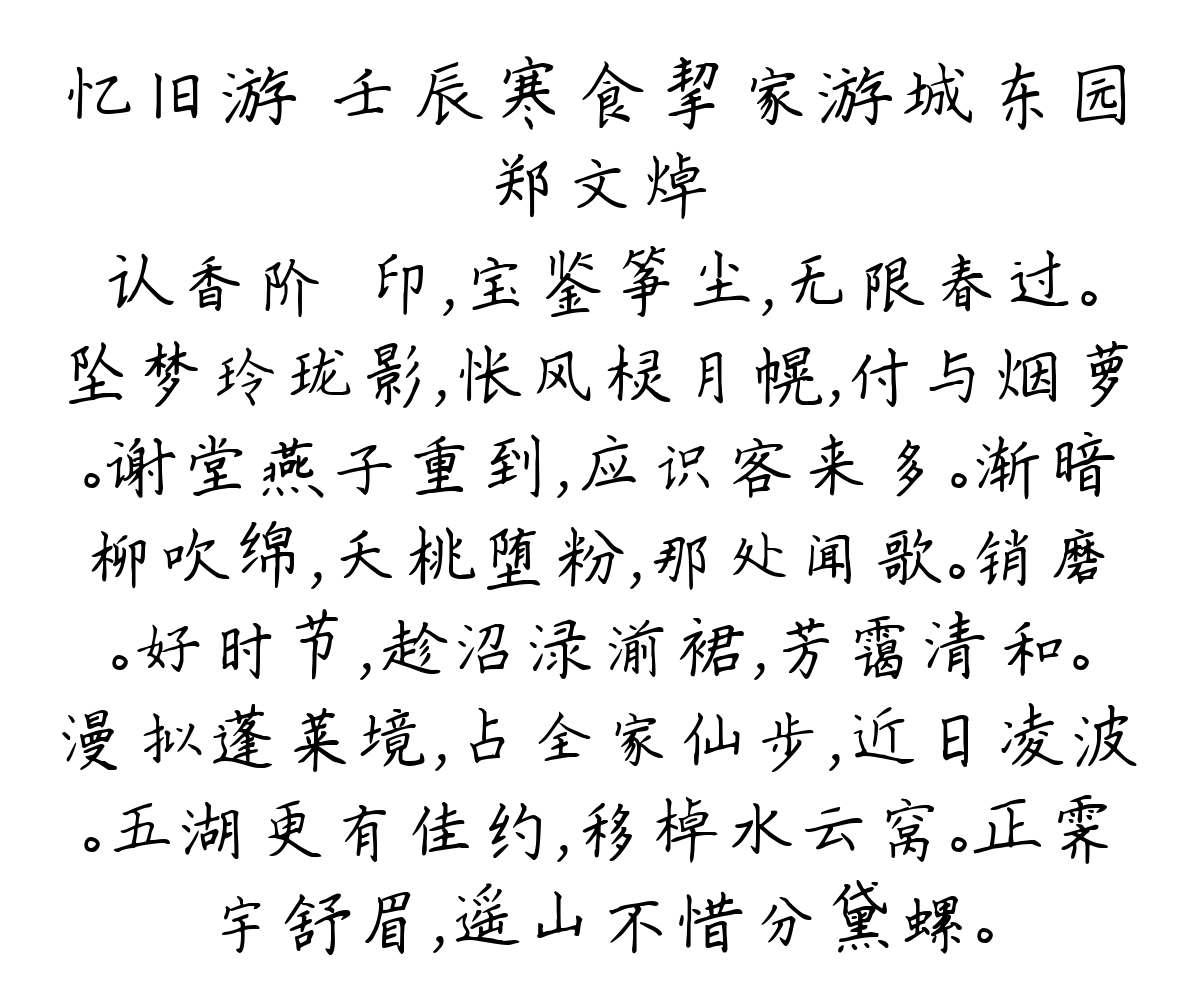 忆旧游 壬辰寒食挈家游城东园
郑文焯
认香阶 印,宝鉴筝尘,无限春过。
坠梦玲珑影,怅风棂月幌,付与烟萝
。谢堂燕子重到,应识客来多。渐暗
柳吹绵,夭桃堕粉,那处闻歌。销磨
。好时节,趁沼渌湔裙,芳霭清和。
漫拟蓬莱境,占全家仙步,近日凌波
。五湖更有佳约,移棹水云窝。正霁
宇舒眉,遥山不惜分黛螺。